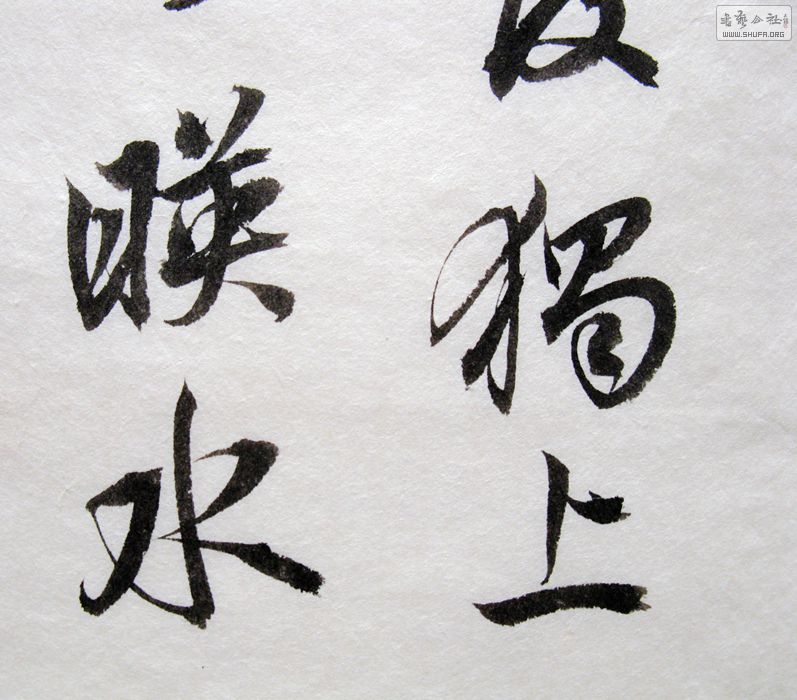 獨上
暎水
書藝公社
WWW.SHUFA.ORG